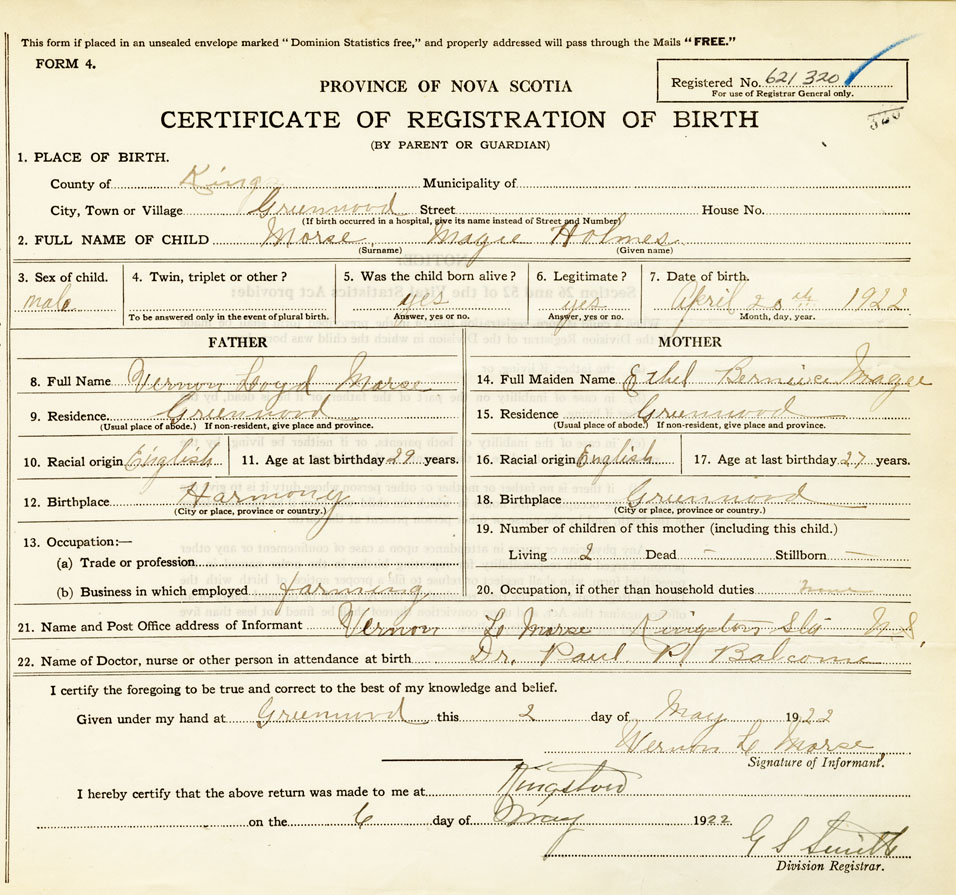 This form if placed in an unsealed envelope marked "Dominion Statistics free," and properly addressed will pass through the Mails "FREE."
FORM 4.
Registered No. 621 320
For use of Registrar General only.
320
PROVINCE OF NOVA SCOTIA
CERTIFICATE OF REGISTRATION OF BIRTH
(BY PARENT OR GUARDIAN)
1. PLACE OF BIRTH.
County of Kings Municipality of
City, Town or Village Greenwood Street House No.
(If birth occurred in a hospital, give its name instead of Street and Number)
2. FULL NAME OF CHILD Morse Magee Holmes
(Surname) (Given name)
3. Sex of child. 4. Twin, triplet or other? 5. Was the child born alive? 6. Legitimate? 7. Date of birth.
male yes yes April 20th 1922
To be answered only in the event of plural birth. Answer, yes or no. Answer, yes or no. Month, day, year.
FATHER
8. Full Name Vernon Loyd Morse
9. Residence. Greenwood
(Usual place of abode.) If non-resident, give place and province.
10. Racial origin English 11. Age at last birthday 29 years.
12. Birthplace Harmony
(City or place, province or country.)
13. Occupation:—
(a) Trade or profession
(b) Business in which employed farming
MOTHER
14. Full Maiden Name Ethel Bernice Magee
15. Residence Greenwood
(Usual place of abode.) If non-resident, give place and province.
16. Racial origin English 17. Age at last birthday 27 years.
18. Birthplace Greenwood
(City or place, province or country.)
19. Number of children of this mother (including this child.)
Living 2 Dead — Stillborn —
20. Occupation, if other than household duties none
21. Name and Post Office address of Informant Vernon L Morse Kingston Sta N.S.
22. Name of Doctor, nurse or other person in attendance at birth Dr. Paul P Balcome
I certify the foregoing to be true and correct to the best of my knowledge and belief.
Given under my hand at Greenwood this 2 day of May 1922
Vernon L Morse
Signature of Informant.
I hereby certify that the above return was made to me at Kingston
on the 6 day of May 1922.
G S Smith
Division Registrar.